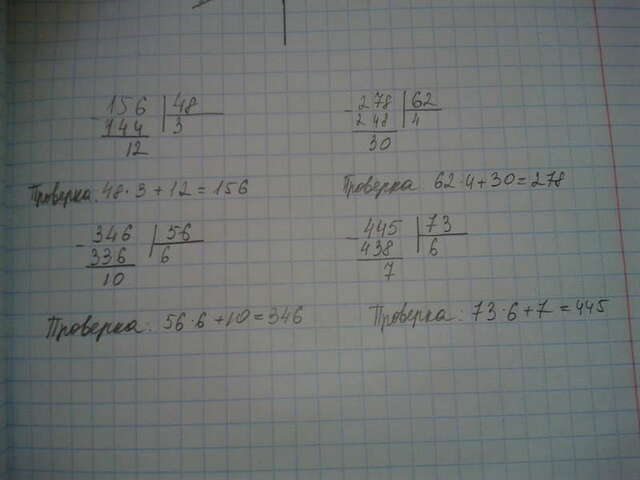 156 48
144 3
12
Проверка: 48·3+12=156
278 62
248 4
30
Проверка: 62·4+30=278
346 56
336 6
10
Проверка: 56·6+10=346
445 73
438 6
7
Проверка: 73·6+7=445